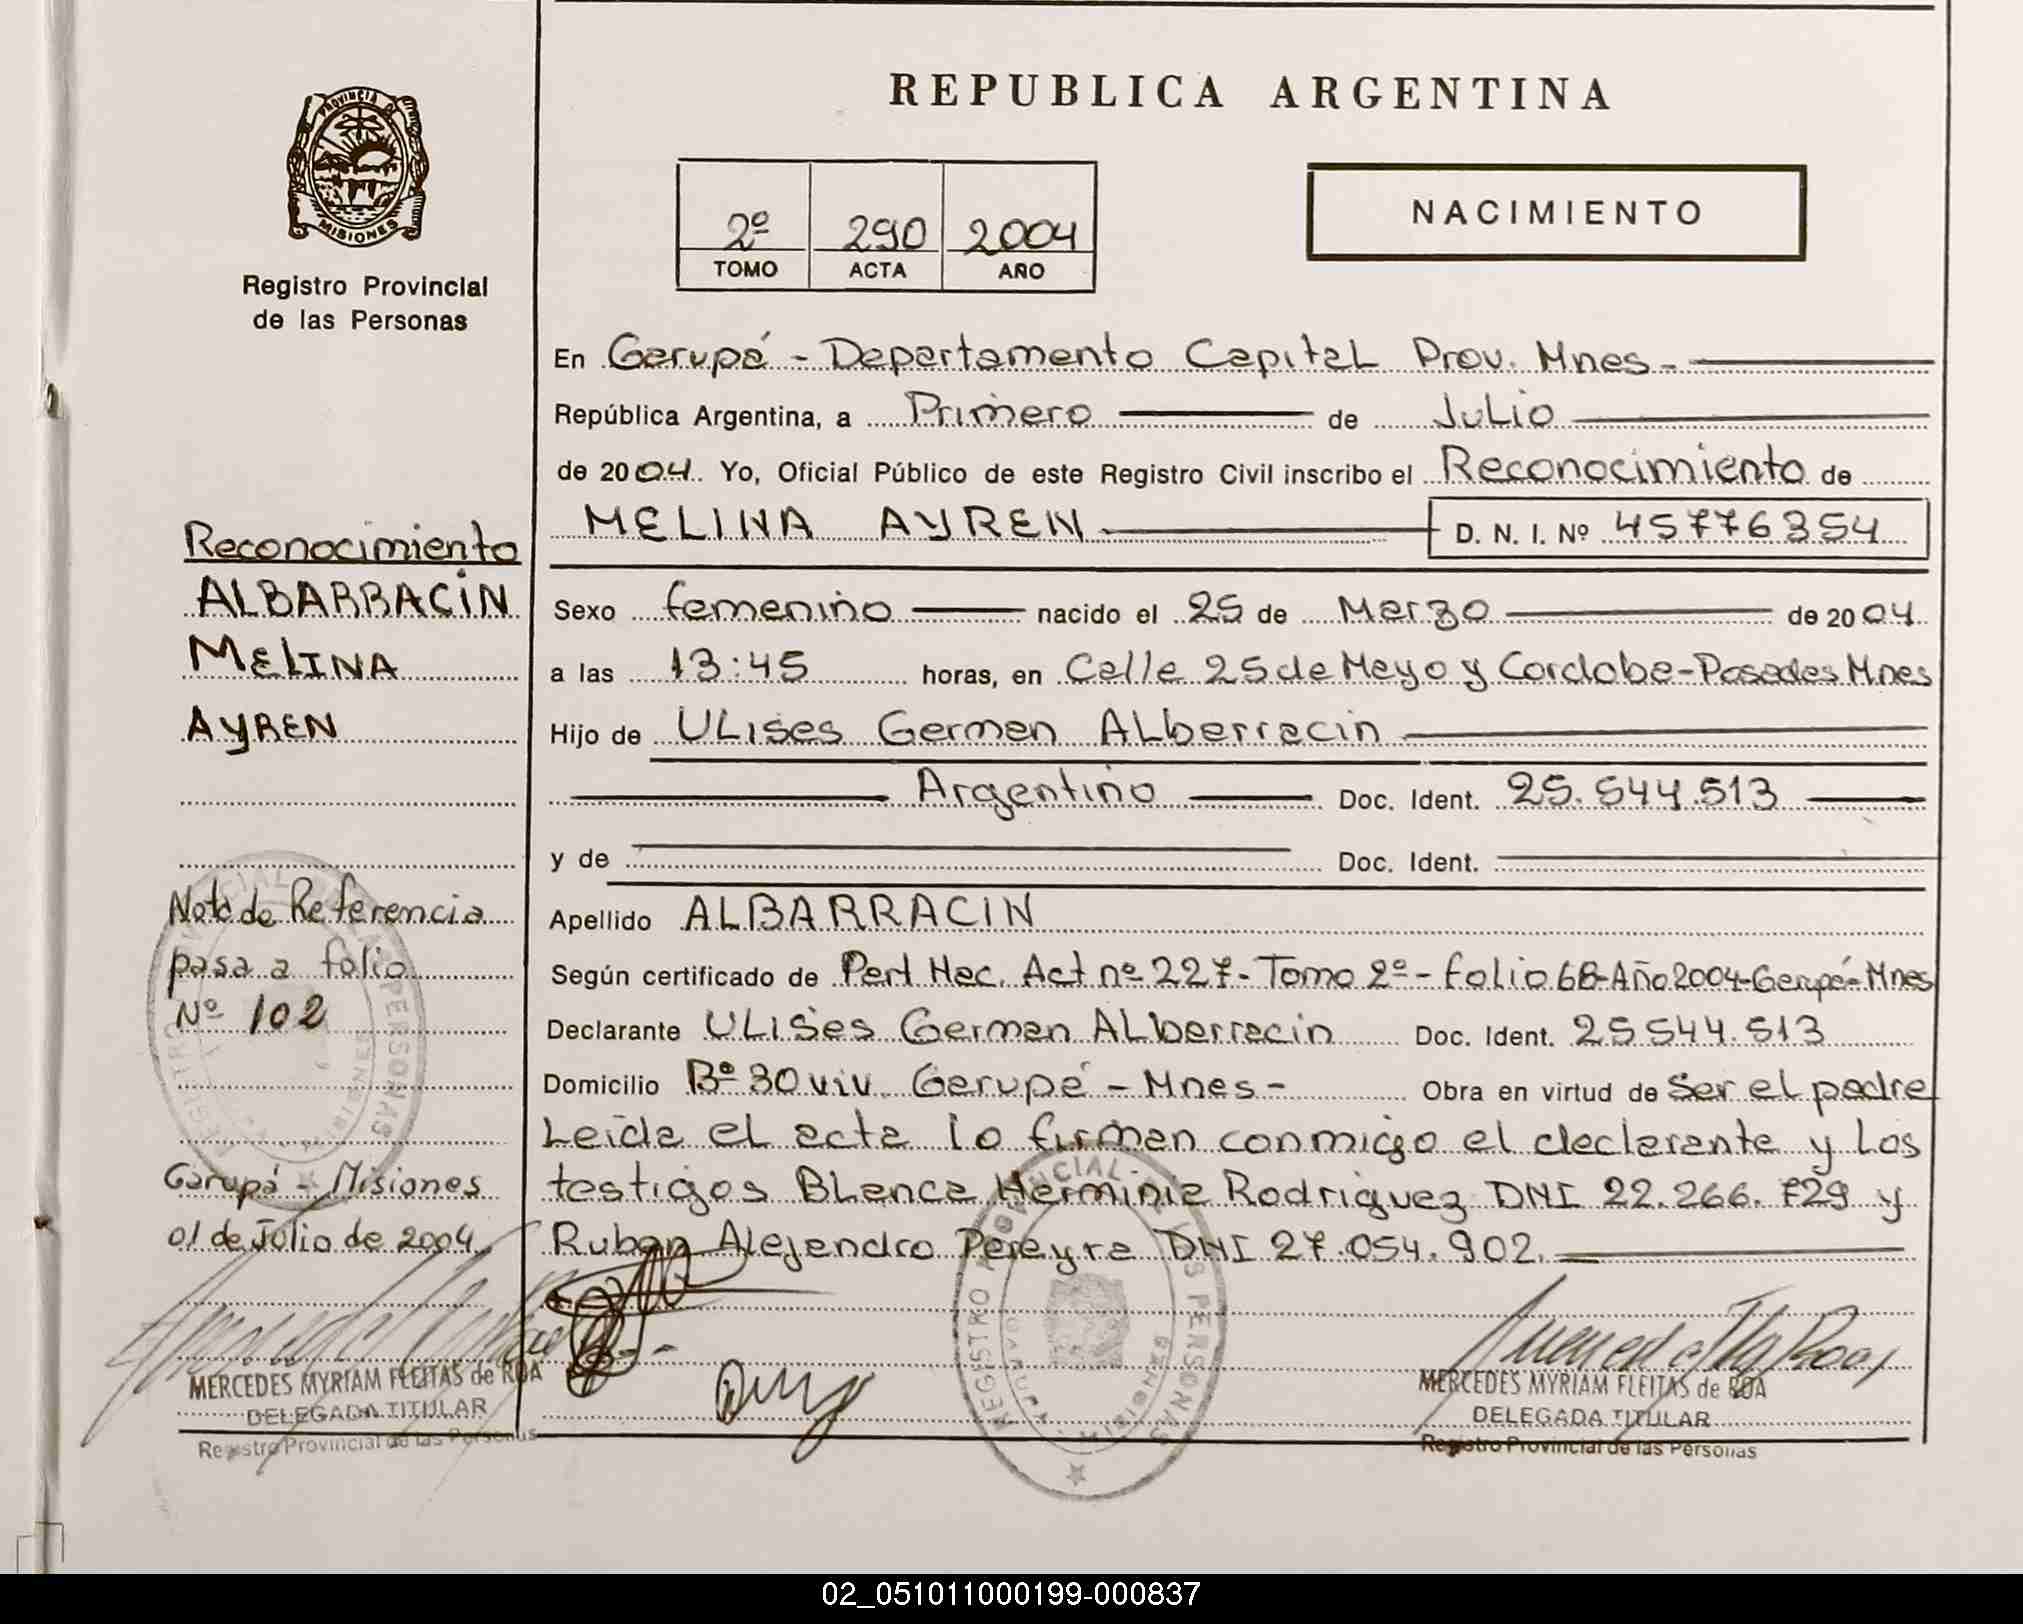 REPUBLICA ARGENTINA
PROVINCIA DE
MISIONES
Registro Provincial
de las Personas
2º 290 2004
TOMO ACTA AÑO
NACIMIENTO
En Garupá - Departamento Capital Prov. Mnes -
República Argentina, a Primero de Julio
de 2004. Yo, Oficial Público de este Registro Civil inscribo el Reconocimiento de
MELINA AYREN D. N. I. Nº 45776354
Sexo femenino nacido el 25 de Marzo de 2004.
a las 13:45 horas, en Calle 25 de Mayo y Cordoba-Posadas Mnes
Hijo de ULises German ALbarracin
Argentino Doc. Ident. 25.544.513
y de Doc. Ident.
Apellido ALBARRACIN
Según certificado de Pert Nac. Act nº 227-Tomo 2º-folio 68-Año 2004-Garupá-Mnes
Declarante ULises German ALbarracin Doc. Ident. 25544.513
Domicilio Bº 30 viv. Garupá - Mnes - Obra en virtud de Ser el padre
Leida el acta lo firman conmigo el declarante y los
testigos Blanca Herminia Rodriguez DNI 22.266.729 y
Ruben Alejandro Pereyra DNI 27.054.902.
Reconocimiento
ALBARRACIN
MELINA
AYREN
Nota de Referencia
pasa a folio
Nº 102
Garupá - Misiones
01 de Julio de 2004
MERCEDES MYRIAM FLEITAS de ROA
DELEGADA TITULAR
Registro Provincial de las Personas
MERCEDES MYRIAM FLEITAS de ROA
DELEGADA TITULAR
Registro Provincial de las Personas
02_051011000199-000837